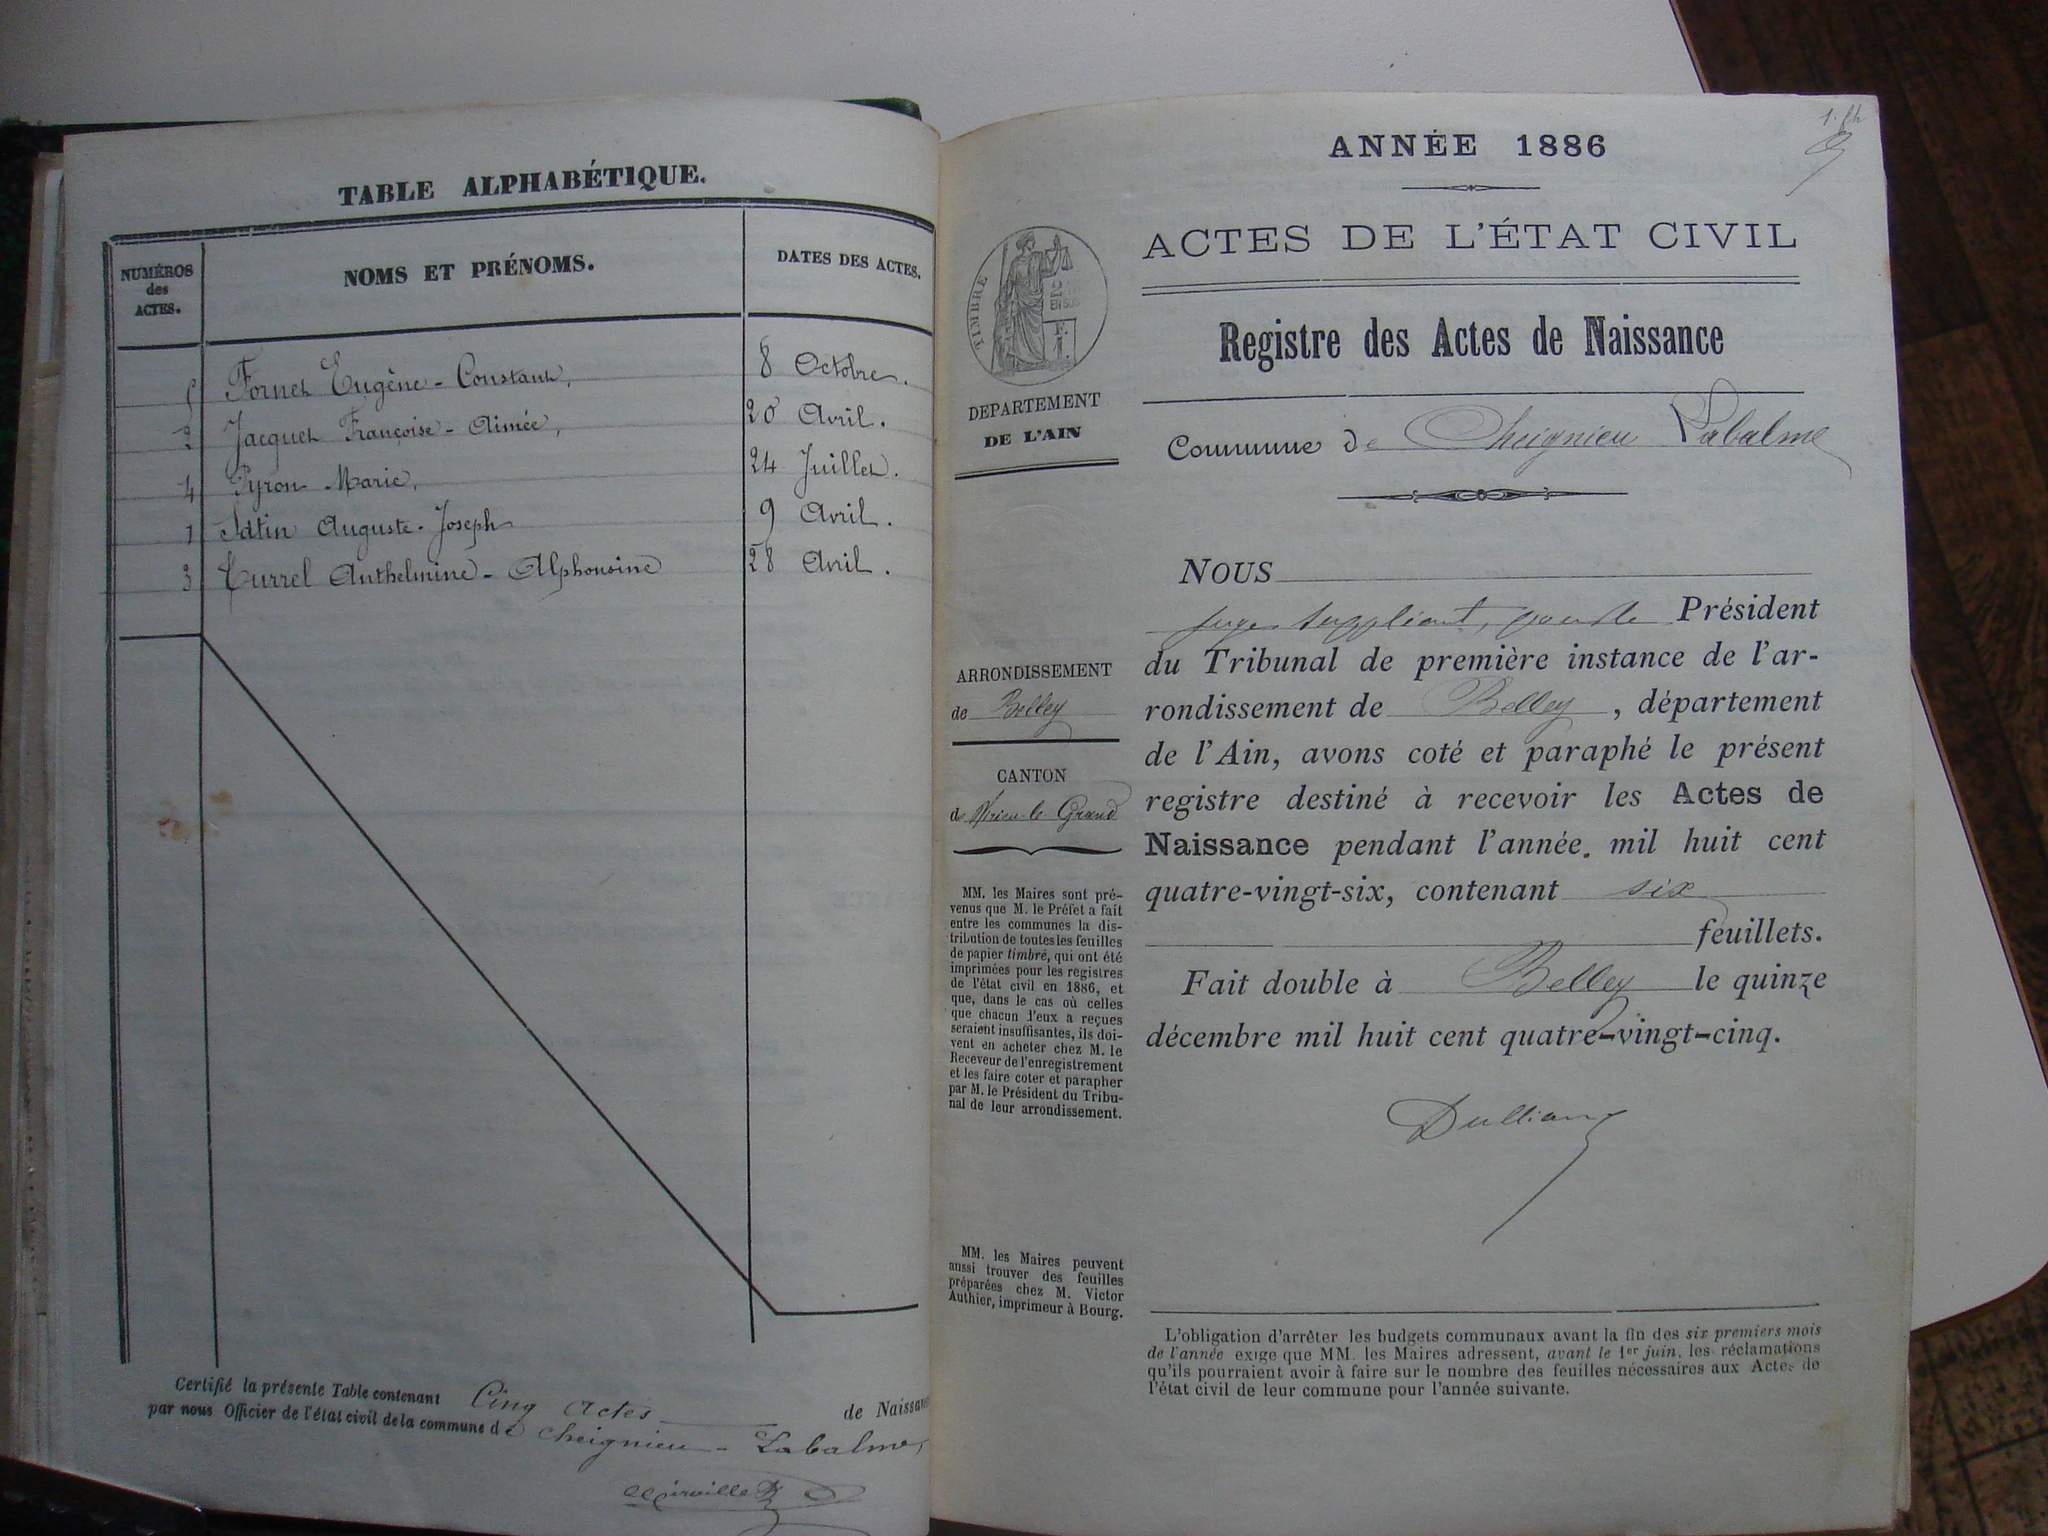 TABLE ALPHABÉTIQUE.
NUMÉROS des ACTES.
NOMS ET PRÉNOMS.
DATES DES ACTES.
5 Fornet Eugène-Constant, 8 Octobre.
2 Jacquet Françoise-Aimée, 20 Avril.
4 Pyron Marie, 24 Juillet.
1 Satin Auguste-Joseph 9 Avril.
3 Turrel Anthelmine-Alphonsine 28 Avril.
Certifié la présente Table contenant Cinq actes de Naissan
par nous Officier de l'état civil de la commune de Cheignieu-Labalme,
ANNÉE 1886
ACTES DE L'ÉTAT CIVIL
TIMBRE
2
EN SUS
Registre des Actes de Naissance
Commune de Cheignieu Labalme
DEPARTEMENT
DE L'AIN
ARRONDISSEMENT
de Belley
CANTON
de Virieu-le-Grand
MM. les Maires sont pré-
venus que M. le Préfet a fait
entre les communes la dis-
tribution de toutes les feuilles
de papier timbré, qui ont été
imprimées pour les registres
de l'état civil en 1886, et
que, dans le cas où celles
que chacun d'eux a reçues
seraient insuffisantes, ils doi-
vent en acheter chez M. le
Receveur de l'enregistrement
et les faire coter et parapher
par M. le Président du Tribu-
nal de leur arrondissement.
MM. les Maires peuvent
aussi trouver des feuilles
préparées chez M. Victor
Authier, imprimeur à Bourg.
NOUS
juge suppléant, pour le Président
du Tribunal de première instance de l'ar-
rondissement de Belley, département
de l'Ain, avons coté et paraphé le présent
registre destiné à recevoir les Actes de
Naissance pendant l'année mil huit cent
quatre-vingt-six, contenant six
feuillets.
Fait double à Belley le quinze
décembre mil huit cent quatre-vingt-cinq.
L'obligation d'arrêter les budgets communaux avant la fin des six premiers mois
de l'année exige que MM. les Maires adressent, avant le 1er juin, les réclamations
qu'ils pourraient avoir à faire sur le nombre des feuilles nécessaires aux Actes de
l'état civil de leur commune pour l'année suivante.